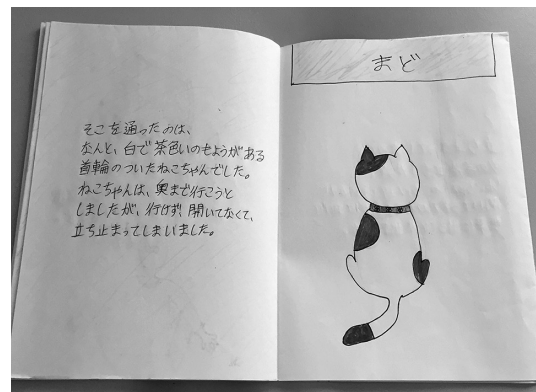 そこを通ったのは、
なんと、白で茶色いのもようがある
首輪のついたねこちゃんでした。
ねこちゃんは、奥まで行こうと
しましたが、行けず、開いてなくて、
立ち止まってしまいました。
まど